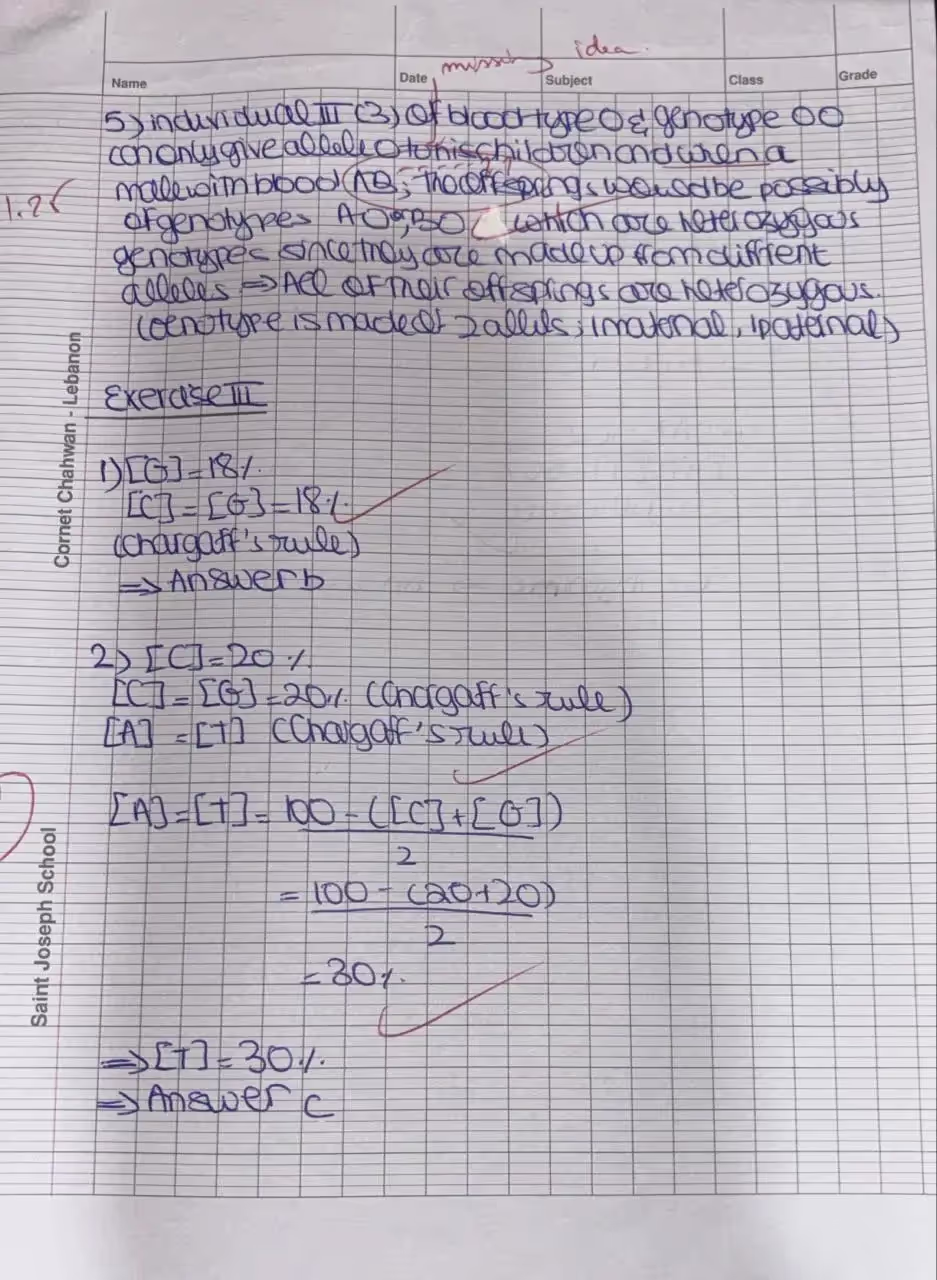 missing idea.
Name Date Subject Class Grade
5) individual III (3) of blood type O & genotype OO
can only give allele O to his children and when a
1.25
male with blood AB; the offsprings would be possibly
of genotypes AO or BO which are heterozygous
genotypes since they are made up from diffrent
alleles ⇒ All of their offsprings are heterozygous.
(Genotype is made of 2 allels; 1 maternal, 1 paternal)
Exercise III
1) [G] = 18%.
[C] = [G] = 18%.
(Chargaff's rule)
⇒ Answer b
2) [C] = 20%.
[C] = [G] = 20%. (Chargaff's rule)
[A] = [T] (Chargaff's rule)
[A] = [T] = 100 - ([C] + [G])
2
= 100 - (20+20)
2
= 30%.
⇒ [T] = 30%.
⇒ Answer c
Cornet Chahwan - Lebanon
Saint Joseph School